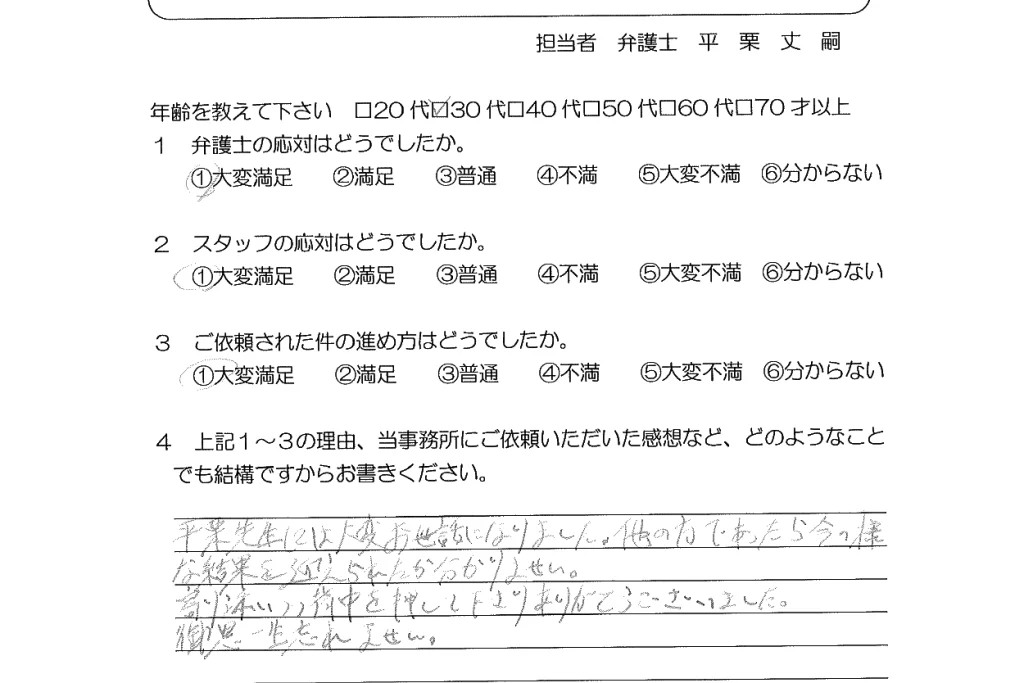 担当者　弁護士　平　栗　丈　嗣
年齢を教えて下さい　□20代☑30代□40代□50代□60代□70才以上
1　弁護士の応対はどうでしたか。
①大変満足　②満足　③普通　④不満　⑤大変不満　⑥分からない
2　スタッフの応対はどうでしたか。
①大変満足　②満足　③普通　④不満　⑤大変不満　⑥分からない
3　ご依頼された件の進め方はどうでしたか。
①大変満足　②満足　③普通　④不満　⑤大変不満　⑥分からない
4　上記1～3の理由、当事務所にご依頼いただいた感想など、どのようなこと
でも結構ですからお書きください。
平栗先生には大変お世話になりました。他の方であったら今の様
な結果を迎えられたか分かりません。
寄り添いつつ背中を押して下さりありがとうございました。
御恩一生忘れません。